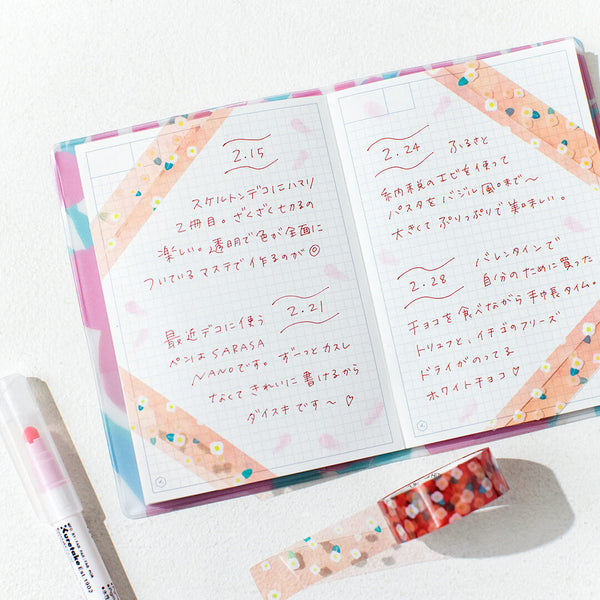 2.15
スケルトンデコにハマり
2冊目。ざくざく切るの
楽しい。透明で色が全面に
ついているマステで作るのが◎
2.21
最近デコに使う
ペンはSARASA
NANOです。ずーっとカスレ
なくてきれいに書けるから
ダイスキです〜♡
2.24
ふるさと
納税のエビを使って
パスタをバジル風味で〜
大きくてぷりっぷりで美味しい。
2.28
バレンタインで
自分のために買った
チョコを食べながら手帳タイム。
トリュフと、イチゴのフリーズ
ドライがのってる
ホワイトチョコ♡
Kuretake
Est.1902